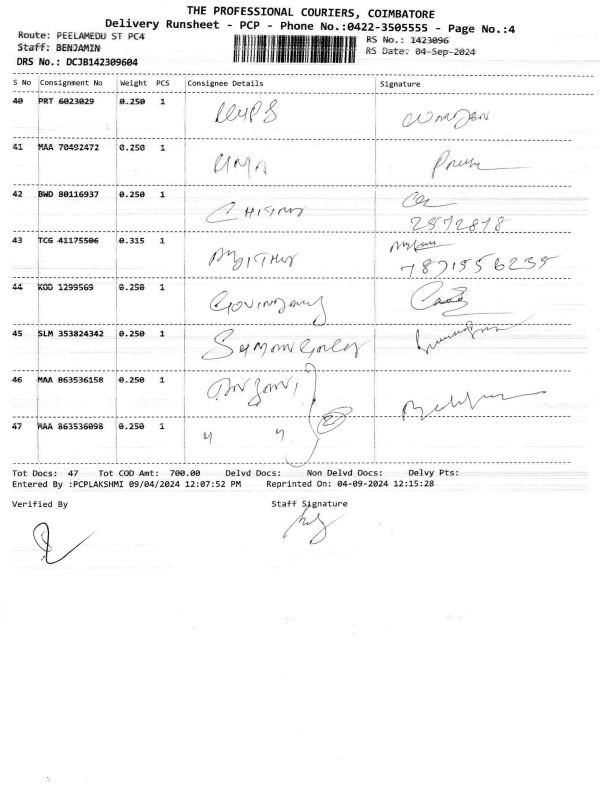 THE PROFESSIONAL COURIERS, COIMBATORE
Delivery Runsheet - PCP - Phone No.:0422-3505555 - Page No.:4
Route: PEELAMEDU ST PC4
RS No.: 1423096
Staff: BENJAMIN
RS Date: 04-Sep-2024
DRS No.: DCJB142309604
S No Consignment No Weight PCS Consignee Details Signature
40 PRT 6023029 0.250 1
41 MAA 70492472 0.250 1 UMA
42 BWD 80116937 0.250 1
2572878
43 TCG 41175506 0.315 1
7871556235
44 KOD 1299569 0.250 1
45 SLM 353824342 0.250 1
46 MAA 863536158 0.250 1
47 MAA 863536098 0.250 1 " "
Tot Docs: 47 Tot COD Amt: 700.00 Delvd Docs: Non Delvd Docs: Delvy Pts:
Entered By :PCPLAKSHMI 09/04/2024 12:07:52 PM Reprinted On: 04-09-2024 12:15:28
Verified By Staff Signature